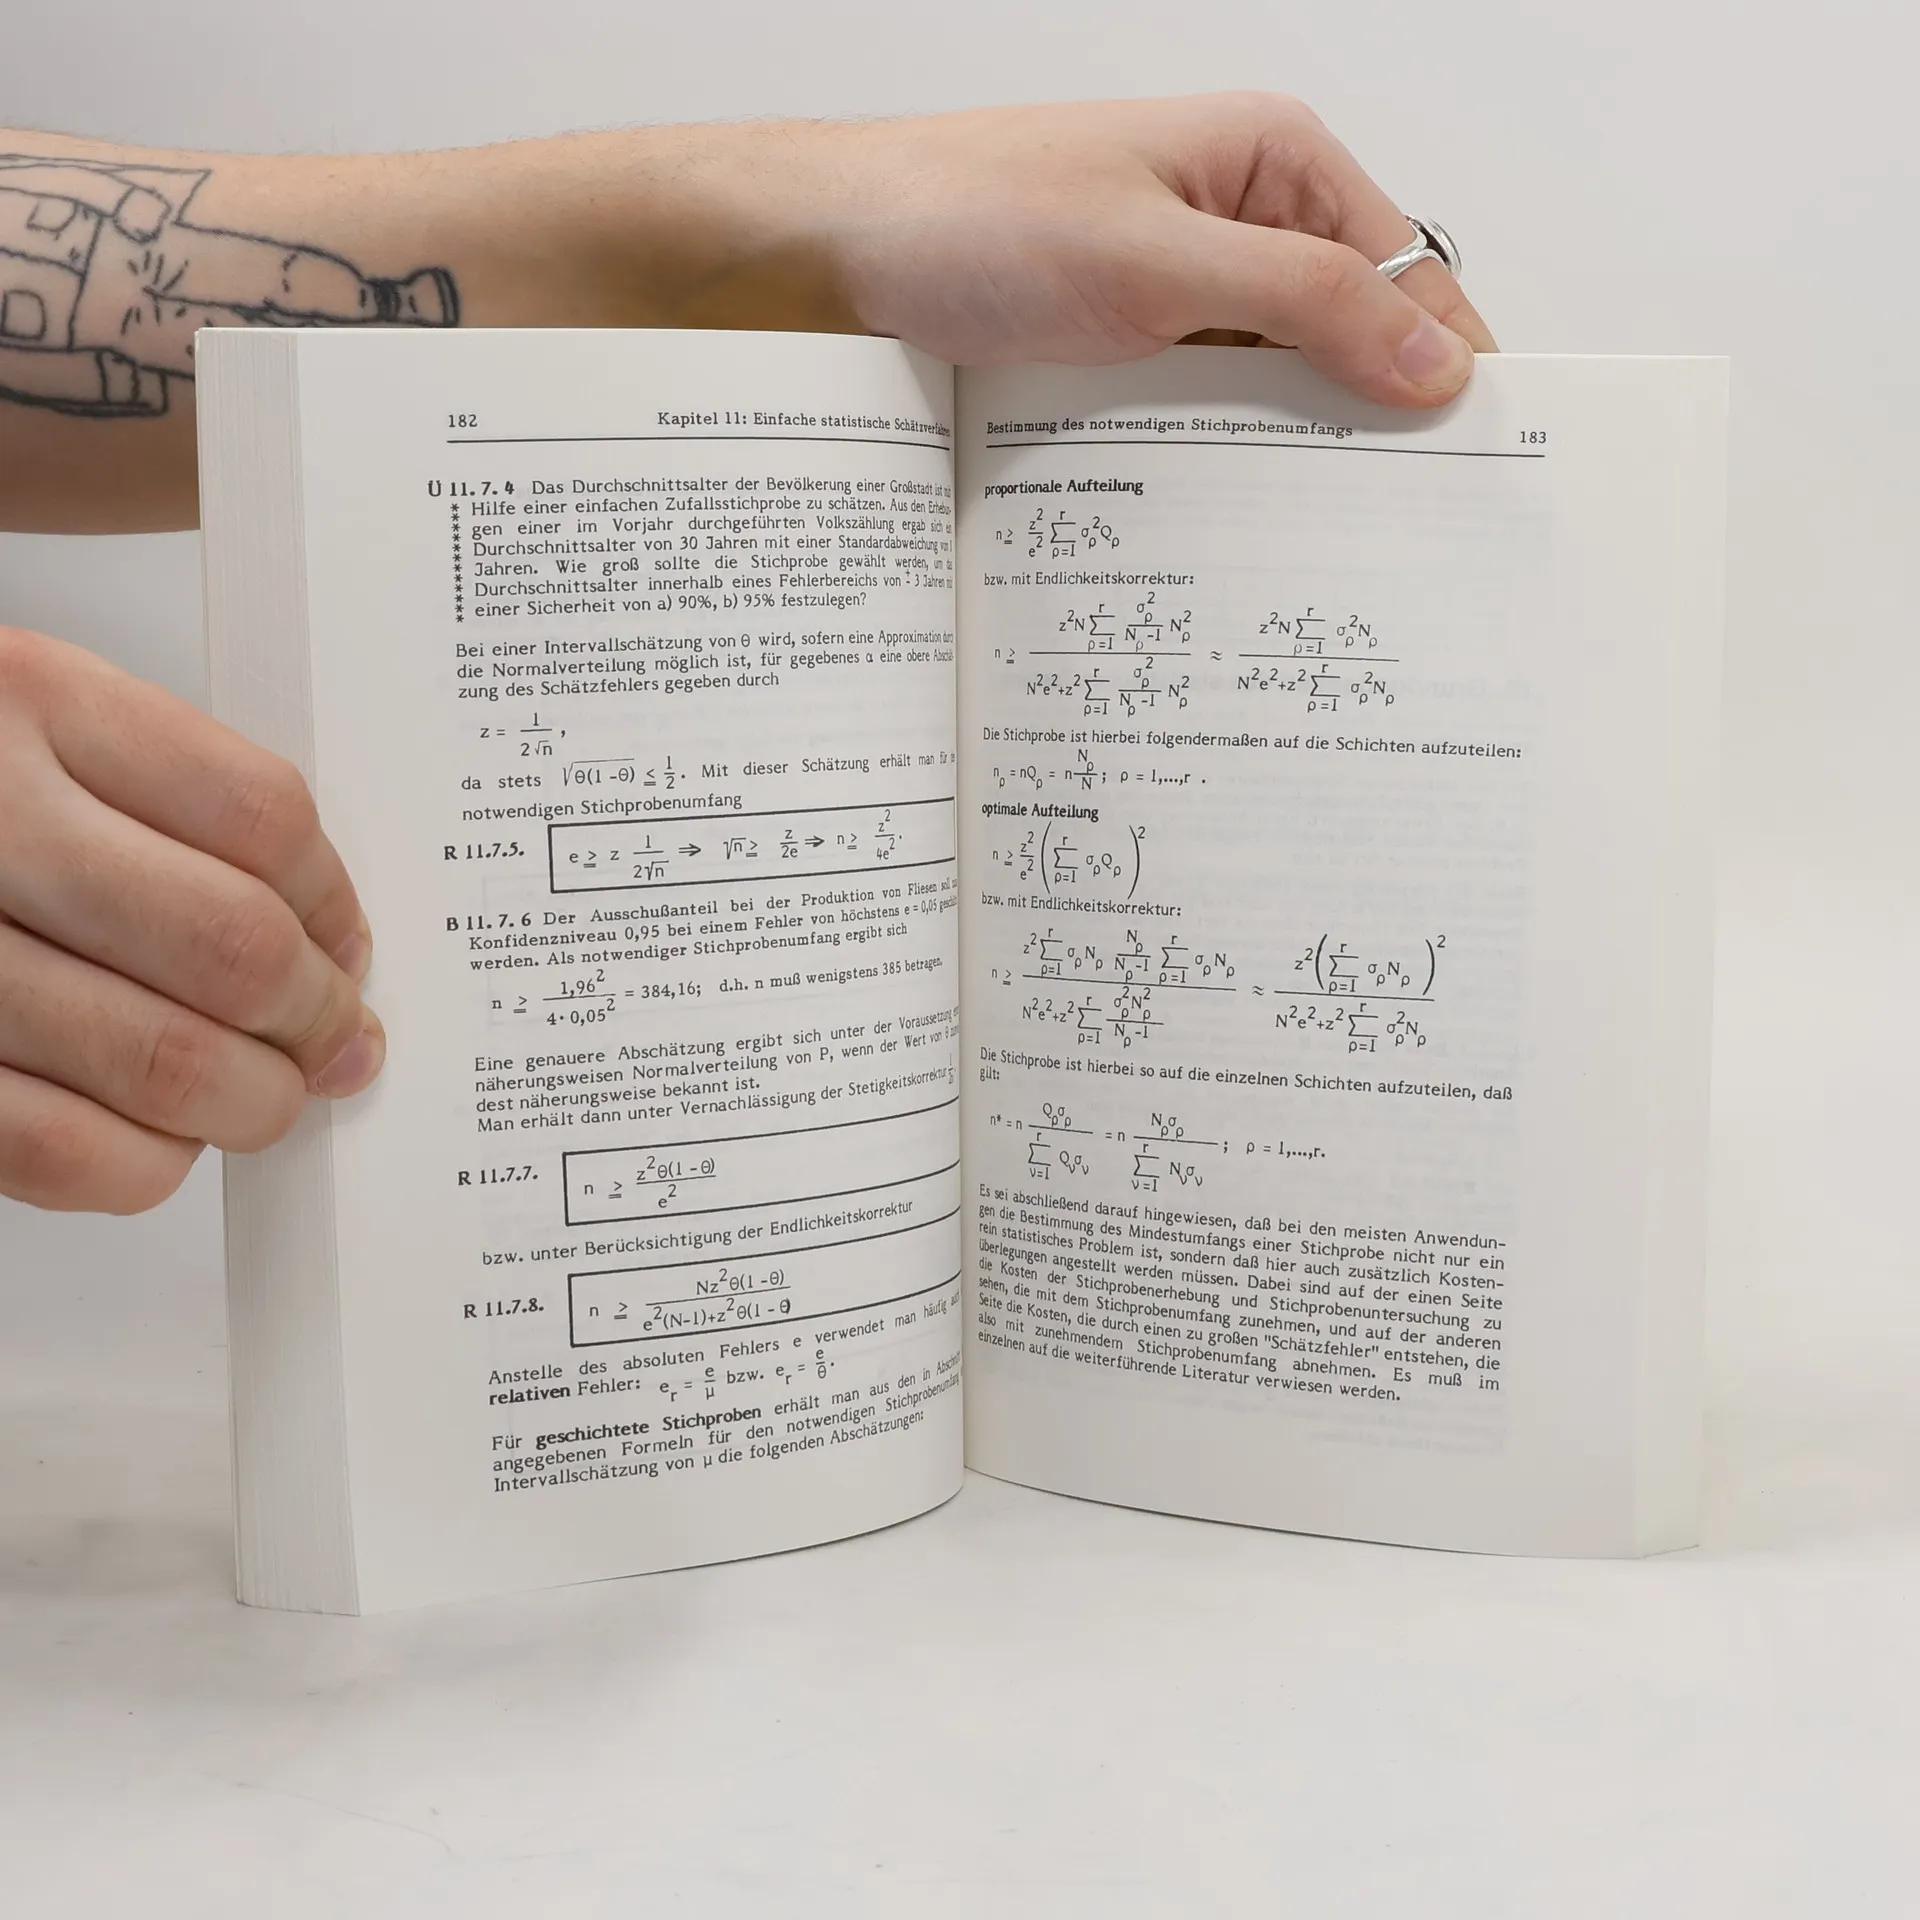 182 Kapitel 11: Einfache statistische Schätzverfahren
Ü 11.7.4 Das Durchschnittsalter der Bevölkerung einer Großstadt ist mit
* Hilfe einer einfachen Zufallsstichprobe zu schätzen. Aus den Erhebun-
* gen einer im Vorjahr durchgeführten Volkszählung ergab sich ein
* Durchschnittsalter von 30 Jahren mit einer Standardabweichung von
* Jahren. Wie groß sollte die Stichprobe gewählt werden, um das
* Durchschnittsalter innerhalb eines Fehlerbereichs von ± 3 Jahren mit
* einer Sicherheit von a) 90%, b) 95% festzulegen?
Bei einer Intervallschätzung von θ wird, sofern eine Approximation durch
die Normalverteilung möglich ist, für gegebenes α eine obere Abschät-
zung des Schätzfehlers gegeben durch
z = 1/(2√n) ,
da stets √(θ(1-θ)) ≤ 1/2. Mit dieser Schätzung erhält man für
notwendigen Stichprobenumfang
R 11.7.5. e ≥ z 1/(2√n) ⇒ √n ≥ z/2e ⇒ n ≥ z²/4e².
B 11.7.6 Der Ausschußanteil bei der Produktion von Fliesen soll
Konfidenzniveau 0,95 bei einem Fehler von höchstens e = 0,05 geschätzt
werden. Als notwendiger Stichprobenumfang ergibt sich
n ≥ 1,96²/(4·0,05²) = 384,16; d.h. n muß wenigstens 385 betragen.
Eine genauere Abschätzung ergibt sich unter der Voraussetzung
näherungsweisen Normalverteilung von P, wenn der Wert von θ
dest näherungsweise bekannt ist.
Man erhält dann unter Vernachlässigung der Stetigkeitskorrektur
R 11.7.7. n ≥ z²θ(1-θ)/e²
bzw. unter Berücksichtigung der Endlichkeitskorrektur
R 11.7.8. n ≥ Nz²θ(1-θ)/(e²(N-1)+z²θ(1-θ))
Anstelle des absoluten Fehlers e verwendet man häufig
relativen Fehler: e_r = e/μ bzw. e_r = e/θ.
Für geschichtete Stichproben erhält man aus den in Abschnitt
angegebenen Formeln für den notwendigen Stichprobenumfang
Intervallschätzung von μ die folgenden Abschätzungen:
Bestimmung des notwendigen Stichprobenumfangs 183
proportionale Aufteilung
n ≥ z²/e² Σ_{ρ=1}^{r} σ_ρ² Q_ρ
bzw. mit Endlichkeitskorrektur:
n ≥ (z²N Σ_{ρ=1}^{r} σ_ρ²/(N_ρ-1) N_ρ²)/(N²e²+z² Σ_{ρ=1}^{r} σ_ρ²/(N_ρ-1) N_ρ²) ≈ (z²N Σ_{ρ=1}^{r} σ_ρ² N_ρ)/(N²e²+z² Σ_{ρ=1}^{r} σ_ρ² N_ρ)
Die Stichprobe ist hierbei folgendermaßen auf die Schichten aufzuteilen:
n_ρ = nQ_ρ = n N_ρ/N ; ρ = 1,...,r .
optimale Aufteilung
n ≥ z²/e² (Σ_{ρ=1}^{r} σ_ρ Q_ρ)²
bzw. mit Endlichkeitskorrektur:
n ≥ (z² Σ_{ρ=1}^{r} σ_ρ N_ρ N_ρ/(N_ρ-1) Σ_{ρ=1}^{r} σ_ρ N_ρ)/(N²e²+z² Σ_{ρ=1}^{r} σ_ρ² N_ρ²/(N_ρ-1)) ≈ z²(Σ_{ρ=1}^{r} σ_ρ N_ρ)²/(N²e²+z² Σ_{ρ=1}^{r} σ_ρ² N_ρ)
Die Stichprobe ist hierbei so auf die einzelnen Schichten aufzuteilen, daß
gilt:
n* = n Q_ρ σ_ρ/(Σ_{ν=1}^{r} Q_ν σ_ν) = n N_ρ σ_ρ/(Σ_{ν=1}^{r} N_ν σ_ν) ; ρ = 1,...,r.
Es sei abschließend darauf hingewiesen, daß bei den meisten Anwendun-
gen die Bestimmung des Mindestumfangs einer Stichprobe nicht nur ein
rein statistisches Problem ist, sondern daß hier auch zusätzlich Kosten-
überlegungen angestellt werden müssen. Dabei sind auf der einen Seite
die Kosten der Stichprobenerhebung und Stichprobenuntersuchung zu
sehen, die mit dem Stichprobenumfang zunehmen, und auf der anderen
Seite die Kosten, die durch einen zu großen "Schätzfehler" entstehen, die
also mit zunehmendem Stichprobenumfang abnehmen. Es muß im
einzelnen auf die weiterführende Literatur verwiesen werden.